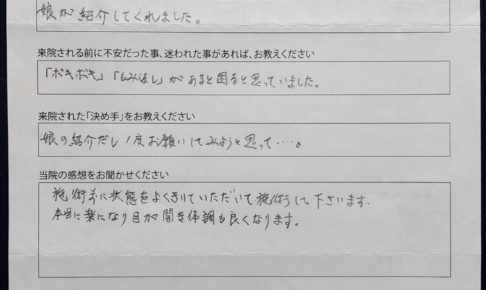 娘が紹介してくれました。
来院される前に不安だった事、迷われた事があれば、お教えください
「ボキボキ」「もみほし」があると困ると思っていました。
来院された「決め手」をお教えください
娘の紹介だし1度お願いしてみようと思って・・・・。
当院の感想をお聞かせください
施術前に状態をよくきいていただいて施術して下さいます.
本当に楽になり目が開き体調も良くなります。